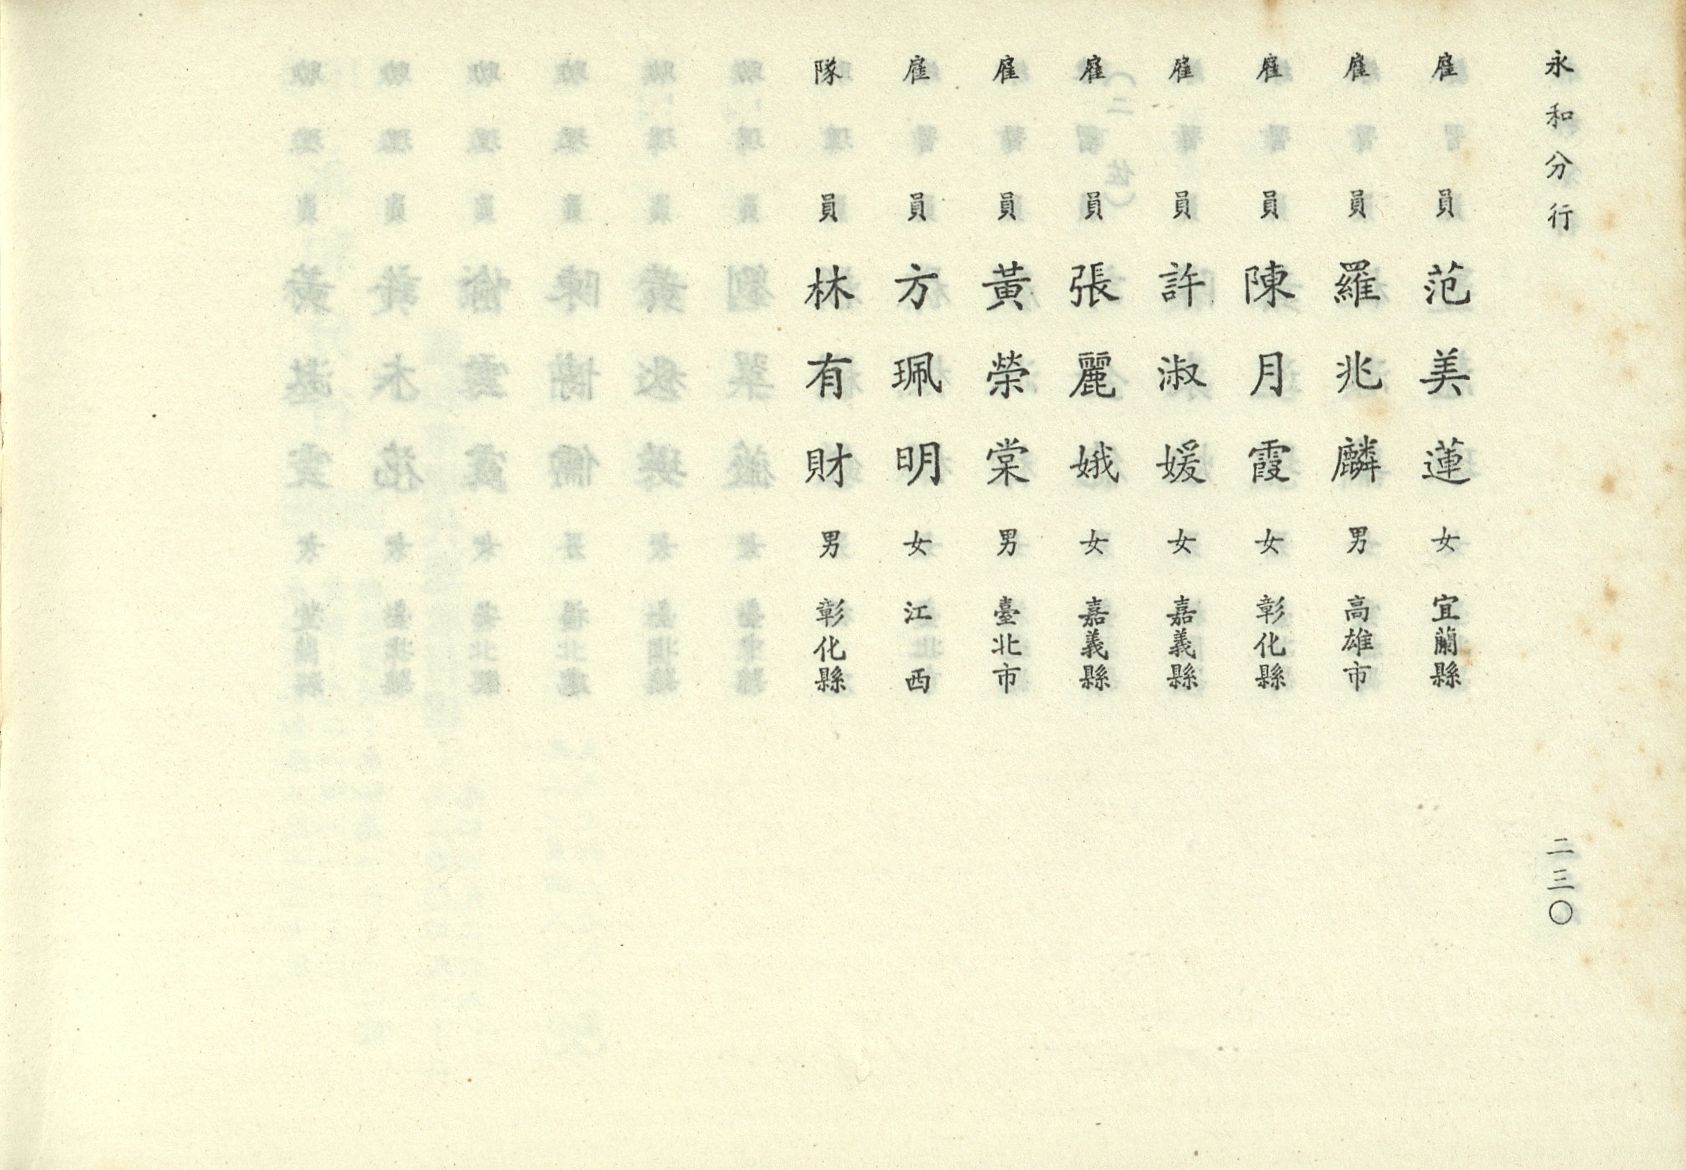 永和分行
二三〇
雇員 范美蓮 女 宜蘭縣
雇員 羅兆麟 男 高雄市
雇員 陳月霞 女 彰化縣
雇員 許淑媛 女 嘉義縣
雇員 張麗娥 女 嘉義縣
雇員 黃榮棠 男 臺北市
雇員 方珮明 女 江西
隊員 林有財 男 彰化縣